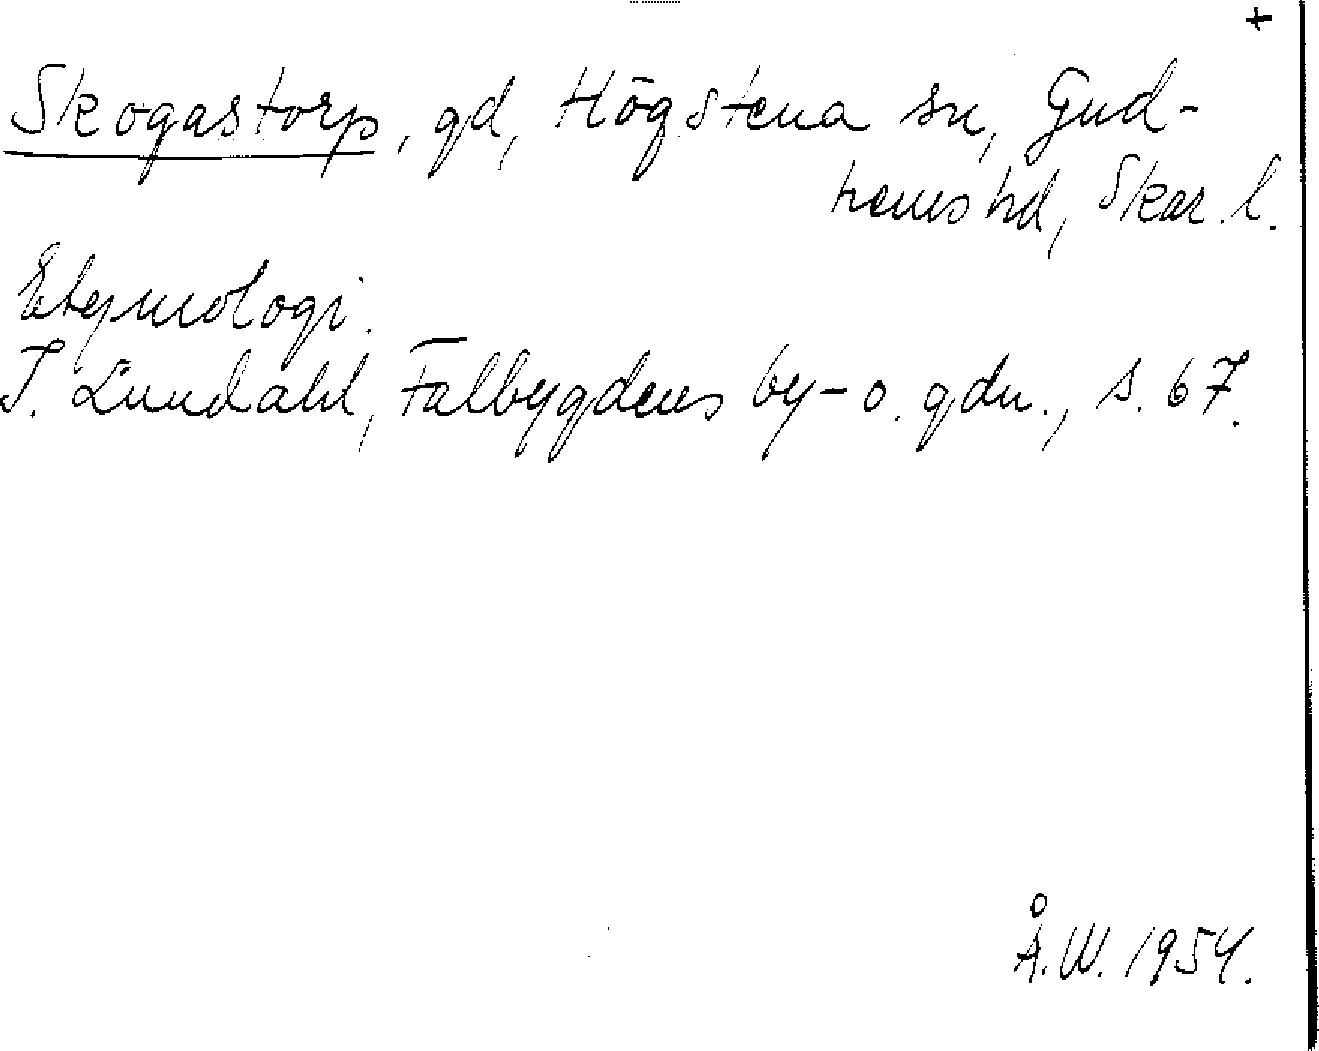 +
Skogastorp, gd, Högstena sn, Gud-
hems hd, Skar. l.
Etymologi.
I. Lundahl, Falbygdens by- o. gdn., s. 67.
Å.W. 1954.